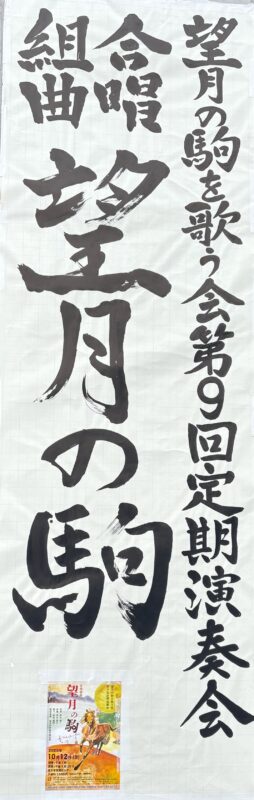 望月の駒を歌う会第9回定期演奏会
合唱
組曲
望月の駒
望月の駒
10月12日